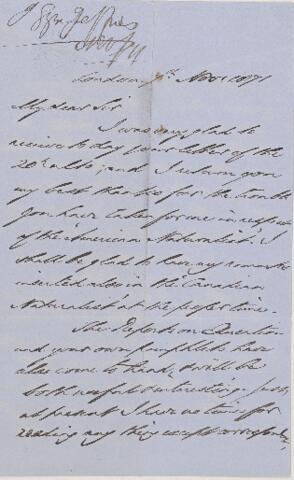 London, Nov. 1871
My dear Sir
I was very glad to
receive to day your letter of the
20th ulto; and I return you
my best thanks for the trouble
you have taken for me in respect
of the "American Naturalist". I
shall be glad to have my remarks
inserted also in the "Canadian
Naturalist" at the proper time.
The Reports on
and your own pamphlets have
also come to hand, & will be
both useful & interesting. Just
at present I have no time for
reading any thing except correspondence,